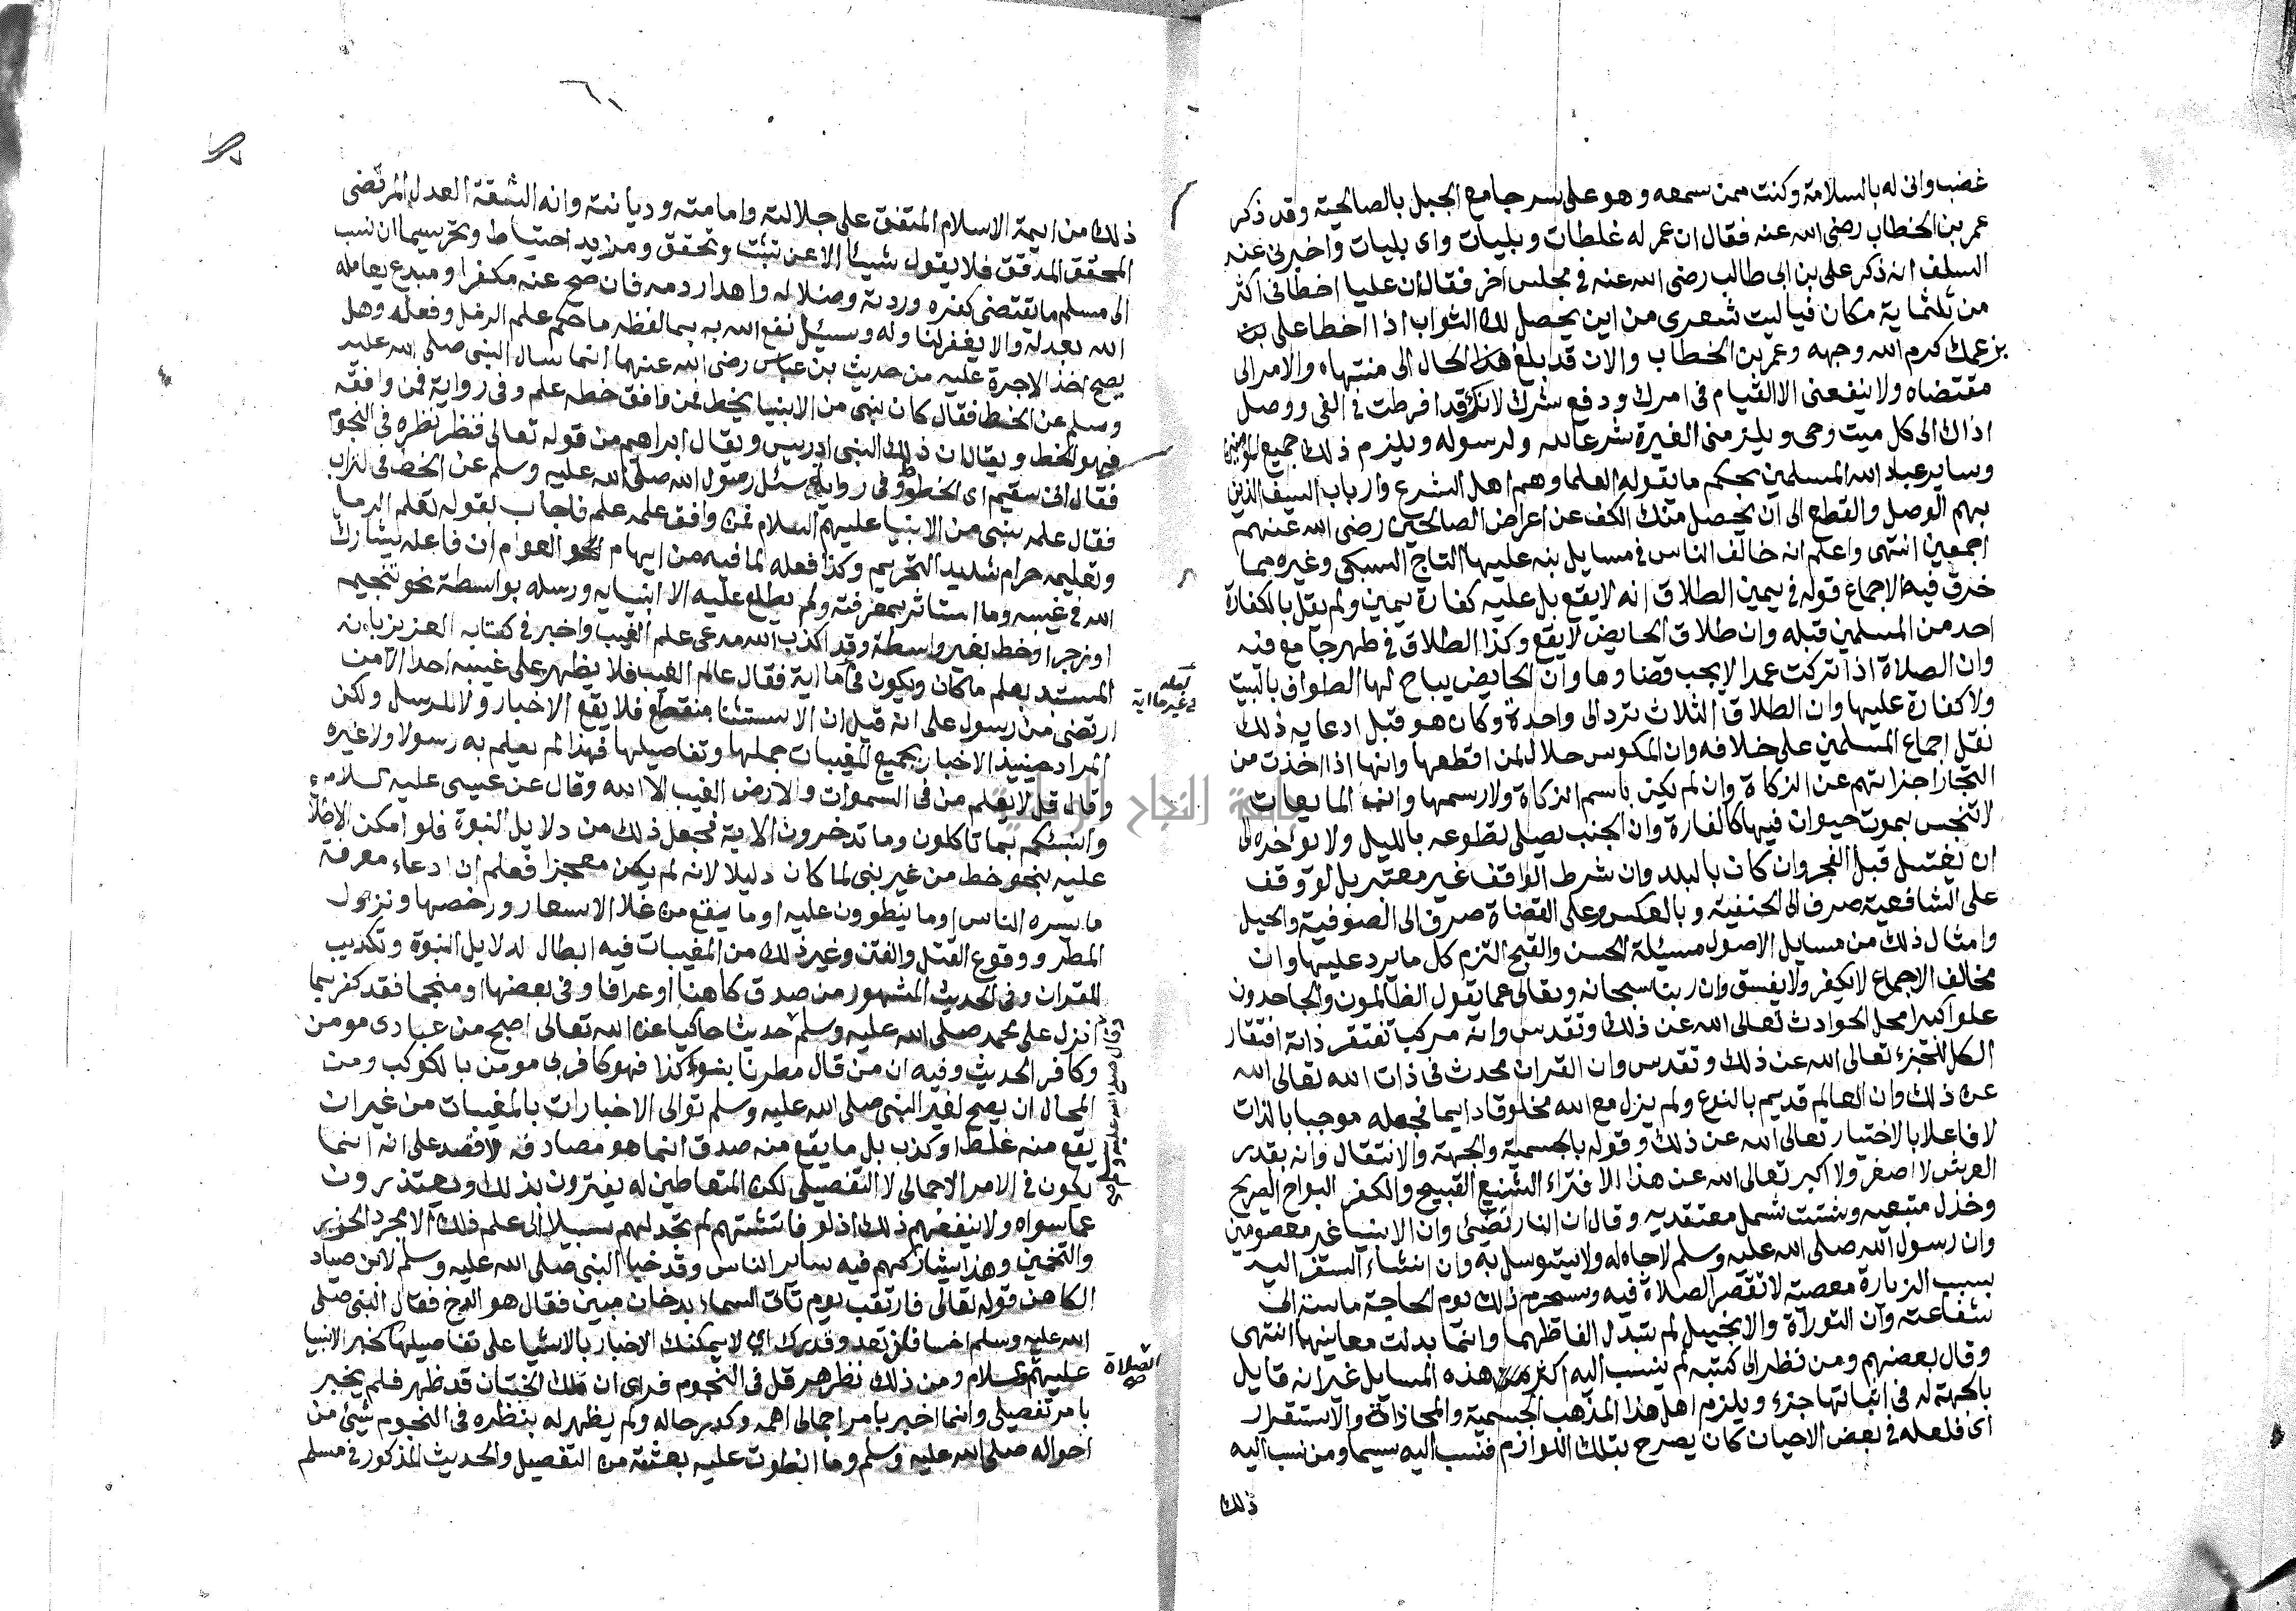 غضب وانى له بالسلامة وكنت ممن سمعه وهو على سر جامع الجبل بالصالحية وقد ذكر
عمر بن الخطاب رضى الله عنه فقال ان عمر له غلطات وبليات واى بليات واخبر نى عنه
السلف انه ذكر على بن ابى طالب رضى الله عنه فى مجلس آخر فقال ان عليا اخطا فى اكثر
من ثلثماية مكان فياليت شعرى من اين يحصل لك الثواب اذا اخطا على بن
بزعمك كرم الله وجهه وعمر بن الخطاب والان قد بلغ هذا الحال الى منتهاه والامر الى
مقتضاه ولا ينفعنى الا القيام فى امرك ودفع شرك لانك قد افرطت فى الغى ووصل
اذاك الى كل ميت وحى ويلزمنى الغيرة شرعا لله ولرسوله ويلزم ذلك جميع المومنين
وساير عباد الله المسلمين بحكم ما يقوله العلما وهم اهل الشرع وارباب السيف الذين
بهم الوصل والقطع الى ان يحصل منك الكف عن اعراض الصالحين رضى الله عنهم
اجمعين انتهى واعلم انه خالف الناس فى مسايل نبه عليها التاج السبكى وغيره مما
خرق فيه الاجماع قوله فى يمين الطلاق انه لا يقع بل عليه كفارة يمين ولم يقل بالكفارة
احد من المسلمين قبله وان طلاق الحايض لا يقع وكذا الطلاق فى طهر جامع فيه
وان الصلاة اذا تركت عمدا لا يجب قضاوها وان الحايض يباح لها الطواف بالبيت
ولا كفارة عليها وان الطلاق الثلاث ترد الى واحدة وكان هو قبل ادعايه ذلك
نقل اجماع المسلمين على خلافه وان المكوس حلال لمن اقطعها وانها اذا اخذت من
التجار اجزاتهم عن الزكاة وان لم يكن باسم الزكاة ولا رسمها وان المايعات
لا تنجس بموت حيوان فيها كالفارة وان الجنب يصلى تطوعه بالليل ولا يوخره الى
ان يغتسل قبل الفجر وان كان بالبلد وان شرط الواقف غير معتبر بل لو وقف
على الشافعية صرف الى الحنفية وبالعكس وعلى القضاة صرف الى الصوفية والحيل
وامثال ذلك من مسايل الاصول مسيلة الحسن والقبح التزم كل ما يرد عليها وان
مخالف الاجماع لا يكفر ولا يفسق وان ربنا سبحانه وتعالى عما يقول الظالمون والجاحدون
علوا كبيرا محل الحوادث تعالى الله عن ذلك وتقدس وانه مركب تفتقر ذاته افتقار
الكل للجزء تعالى الله عن ذلك وتقدس وان القران محدث فى ذات الله تعالى الله
عن ذلك وان العالم قديم بالنوع ولم يزل مع الله مخلوقا دايما فجعله موجبا بالذات
لا فاعلا بالاختيار تعالى الله عن ذلك وقوله بالجسمية والجهة والانتقال وانه بقدر
العرش لا اصغر ولا اكبر تعالى الله عن هذا الافتراء الشنيع القبيح والكفر البواح الصريح
وخذل متبعيه وشتت شمل معتقديه وقال ان النار تفنى وان الانبيا غير معصومين
وان رسول الله صلى الله عليه وسلم لا جاه له ولا يتوسل به وان انشاء السفر اليه
بسبب الزيارة معصية لا تقصر الصلاة فيه وسيحرم ذلك يوم الحاجة ماسة الى
شفاعته وان التوراة والانجيل لم تبدل الفاظهما وانما بدلت معانيهما انتهى
وقال بعضهم ومن نظر الى كتبه لم ينسب اليه اكثر هذه المسايل غير انه قايل
بالجهة له فى اثباتها جزء ويلزم اهل هذا المذهب الجسمية والمحاذاة والاستقرار
اى فلعله فى بعض الاحيان كان يصرح بتلك اللوازم فنسب اليه سيما ومن نسب اليه
ذلك
ذلك من ايمة الاسلام المتفق على جلالته وامامته وديانته وانه الثقة العدل المرتضى
المحقق المدقق فلا يقول شيئا الا عن تثبت وتحقق ومزيد احتياط وتحر سيما ان نسب
الى مسلم ما تقتضى كفره وردته وضلاله واهدار دمه فان صح عنه مكفر او مبدع يعامله
الله بعدله والا يغفر لنا وله وسيئل نفع الله به بما لفظه ما حكم علم الرمل وفعله وهل
يصح اخذ الاجرة عليه من حديث بن عباس رضى الله عنهما انما سال النبى صلى الله عليه
وسلم عن الخط فقال كان نبى من الانبيا يخط فمن وافق خطه علم وفى رواية فمن وافقه
فهو الخط ويقال ان ذلك النبى ادريس ويقال ابراهيم من قوله تعالى فنظر نظرة فى النجوم
فقال انى سقيم اى الخطوط وفى رواية سئل رسول الله صلى الله عليه وسلم عن الخط فى التراب
فقال علمه نبى من الانبيا عليهم السلام فمن وافق علمه علم فاجاب بقوله تعلم الرمل
وتعليمه حرام شديد التحريم وكذا فعله لما فيه من ايهام العوام ان فاعله يشارك
الله فى غيبه وما استاثر بمعرفته ولم يطلع عليه الا انبيايه ورسله بواسطة نحو تنجيم
او زجر او خط بغير واسطة وقد اكذب الله مدعى علم الغيب واخبر فى كتابه العزيز بانه
المستبد بعلم ما كان ويكون فى ما اية فقال عالم الغيب فلا يظهر على غيبه احدا الا من
ارتضى من رسول على انه قيل ان الاستثنا منقطع فلا يقع الاخبار ولا للمرسل ولكن
المراد حينيذ الاخبار بجميع المغيبات جملها وتفاصيلها فهذا لم يعلم به رسولا ولا غيره
وقال قل لا يعلم من فى السموات والارض الغيب الا الله وقال عن عيسى عليه السلام
وانبئكم بما تاكلون وما تدخرون الاية فجعل ذلك من دلايل النبوة فلو امكن الاطلاع
عليه بنحو خط من غير نبى لما كان دليلا لانه لم يكن معجزا فعلم ان ادعاء معرفة
ما يسره الناس او ما ينطوون عليه او ما يقع من غلا الاسعار ورخصها ونزول
المطر ووقوع القتل والفتن وغير ذلك من المغيبات فيه ابطال لدلايل النبوة وتكذيب
للقران وفى الحديث المشهور من صدق كاهنا او عرافا وفى بعضها او منجما فقد كفر بما
انزل على محمد صلى الله عليه وسلم حديث حاكيا عن الله تعالى اصبح من عبادى مومن
وكافر الحديث وفيه ان من قال مطرنا بنوء كذا فهو كافر بى مومن بالكوكب ومن
المحال ان يصح لغير النبى صلى الله عليه وسلم توالى الاخبارات بالمغيبات من غير ان
يقع منه غلط او كذب بل ما يقع منه صدق انما هو مصادفة لا قصد على انه انما
يكون فى الامر الاجمالى لا التفصيلى لكن المتعاطين له يغترون بذلك ويعتذرون
عما سواه ولا ينفعهم ذلك اذ لو فاتشتهم لم تجد لهم سبيلا الى علم ذلك الا مجرد الحزر
والتخمين وهذا يشاركهم فيه ساير الناس وقد خبا النبى صلى الله عليه وسلم لابن صياد
الكاهن قوله تعالى فارتقب يوم تاتى السماء بدخان مبين فقال هو الدخ فقال النبى صلى
الله عليه وسلم اخسا فلن تعدو قدرك اى لا يمكنك الاخبار بالاشيا على تفاصيلها كخبر الانبيا
عليهم والسلام ومن ذلك نظر هرقل فى النجوم فراى ان ملك الختان قد ظهر فلم يخبر
بامر تفصيلى وانما اخبر بامر اجمالى اهمه وكدر حاله ولم يظهر له بنظره فى النجوم شيئ من
احواله صلى الله عليه وسلم وما انطوت عليه بعثته من التفصيل والحديث المذكور فى مسلم
لعله
فى غير ما اية
وقال صلى الله عليه وسلم
الصلاة
جامعة النجاح الوطنية